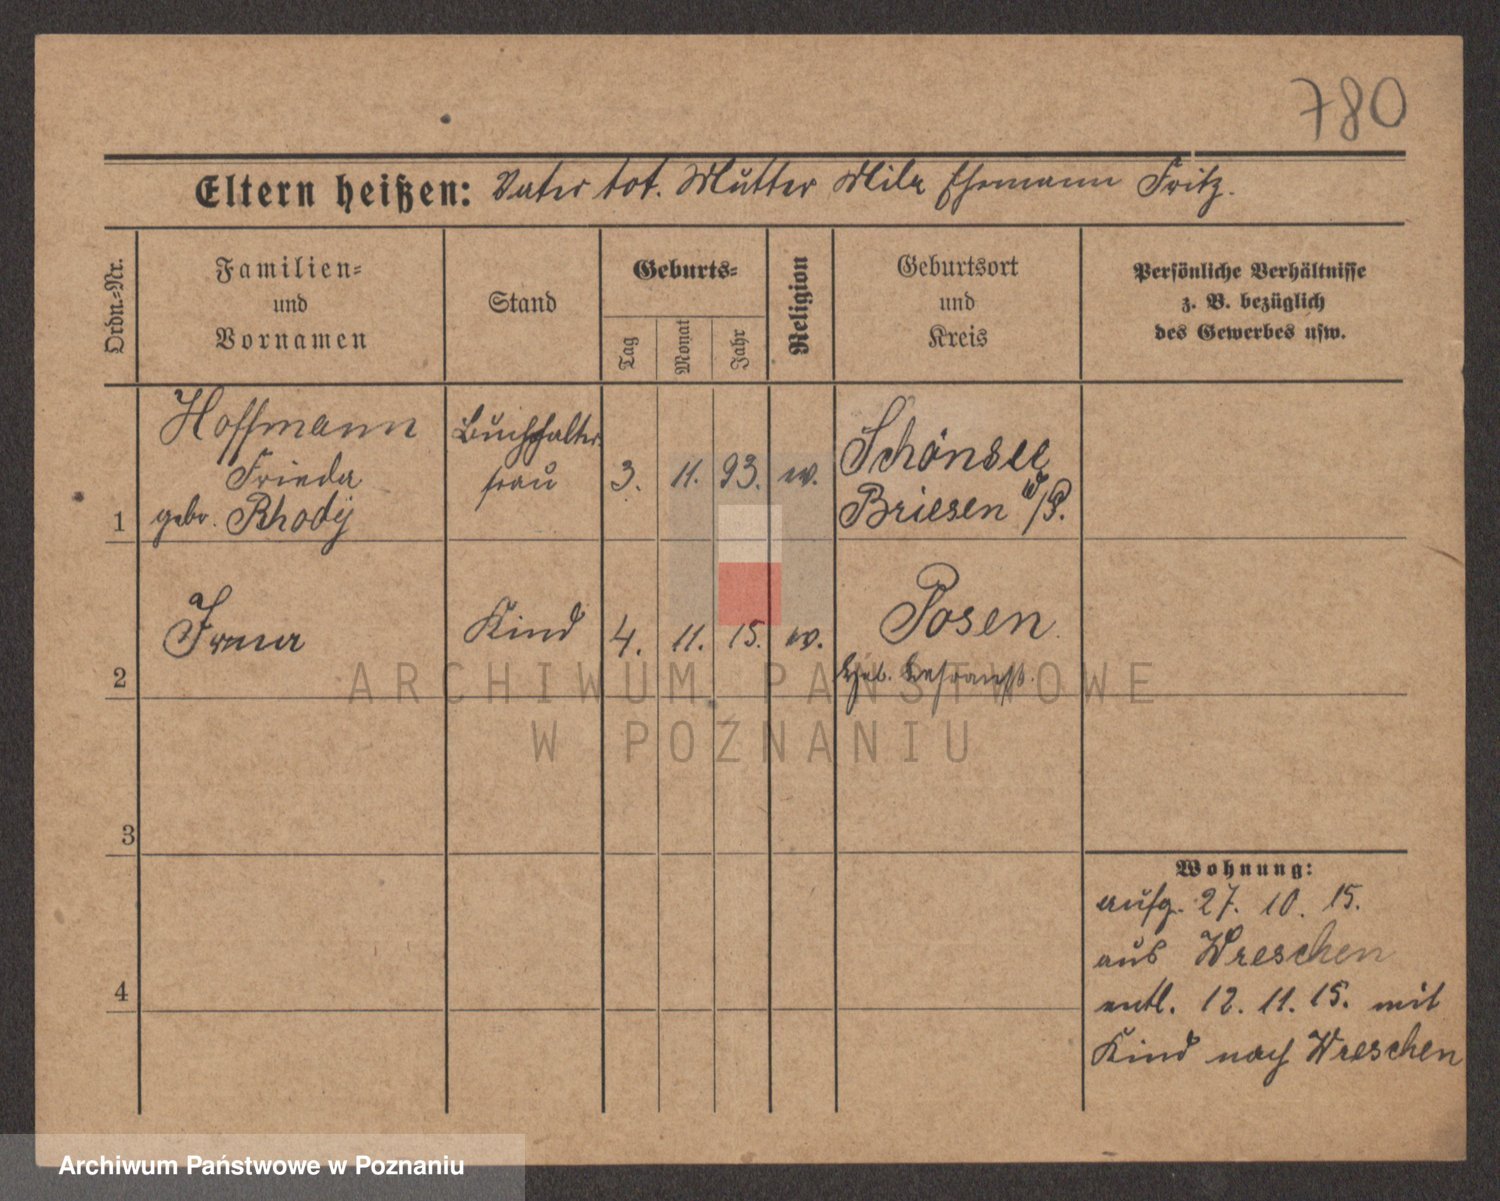 780
Eltern heißen: Vater tot. Mutter Mila Ehemann Fritz.
Ordn.=Nr.
Familien=
und
Vornamen
Stand
Geburts=
Tag
Monat
Jahr
Religion
Geburtsort
und
Kreis
Persönliche Verhältnisse
z. B. bezüglich
des Gewerbes usw.
1
Hoffmann
Frieda
gebr. Rhody
Buchhalter
frau
3. 11. 93. ev.
Schönsee
Briesen W/P.
2
Irma
Kind
4. 11. 15. ev.
Posen
3
4
Wohnung:
aufg. 27. 10. 15.
aus Wreschen
entl. 12. 11. 15. mit
Kind nach Wreschen
ARCHIWUM PAŃSTWOWE
W POZNANIU
Archiwum Państwowe w Poznaniu